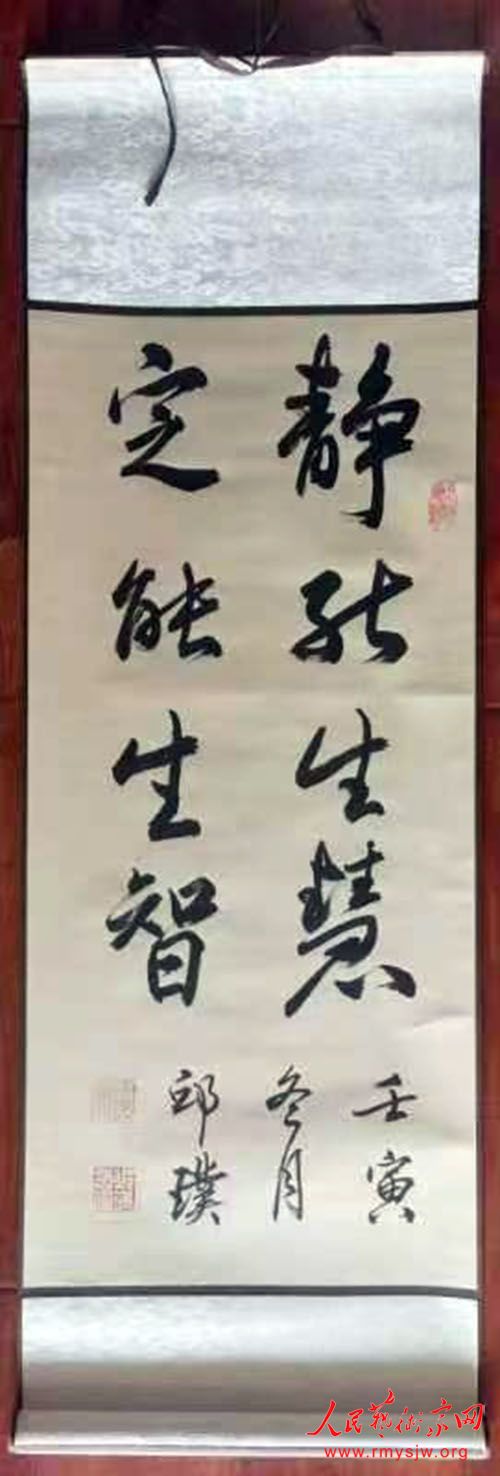 静能生慧
定能生智
壬寅
冬月
邱璞
人民艺术家网
www.rmysjw.org